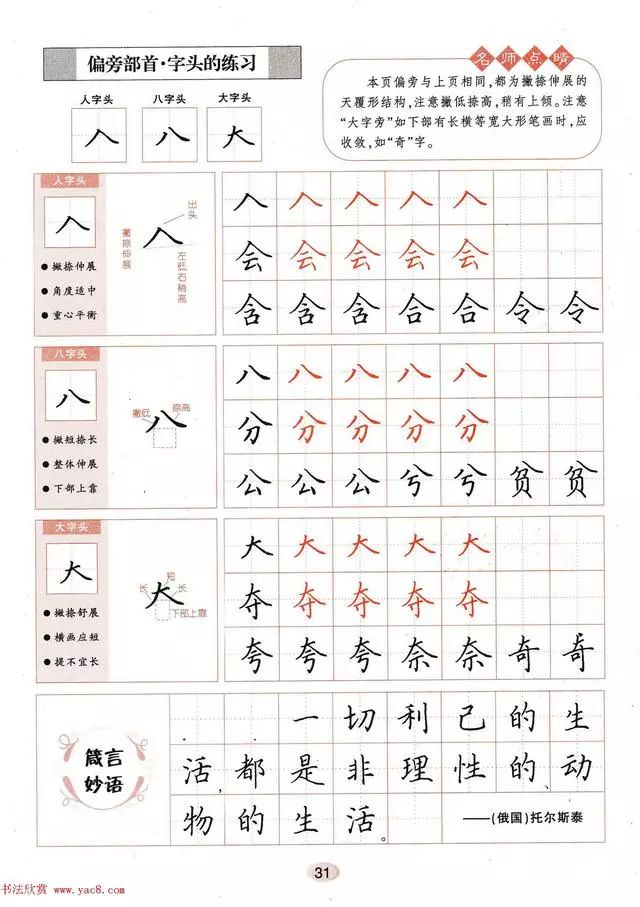 偏旁部首·字头的练习
人字头 八字头 大字头
人 八 大
名师点睛
本页偏旁与上页相同,都为撇捺伸展的
天覆形结构,注意撇低捺高,稍有上倾。注意
“大字旁”如下部有长横等宽大形笔画时,应
收敛,如“奇”字。
人字头
人
撇捺伸展
角度适中
重心平衡
人
出头
撇捺伸展
左低右稍高
人 人 人 人 人
会 会 会 会 会
含 含 合 合 合 令 令
八字头
八
撇短捺长
整体伸展
下部上靠
八
撇低 捺高
八 八 八 八 八
分 分 分 分 分
公 公 公 兮 兮 贫 贫
大字头
大
撇捺舒展
横画应短
提不宜长
大
短
长 长
下部上靠
大 大 大 大 大
夺 夺 夺 夺 夺
夸 夸 夸 奈 奈 奇 奇
箴言
妙语
一切利己的生
活,都是非理性的、动
物的生活。
——(俄国)托尔斯泰
31
书法欣赏
www.yac8.com